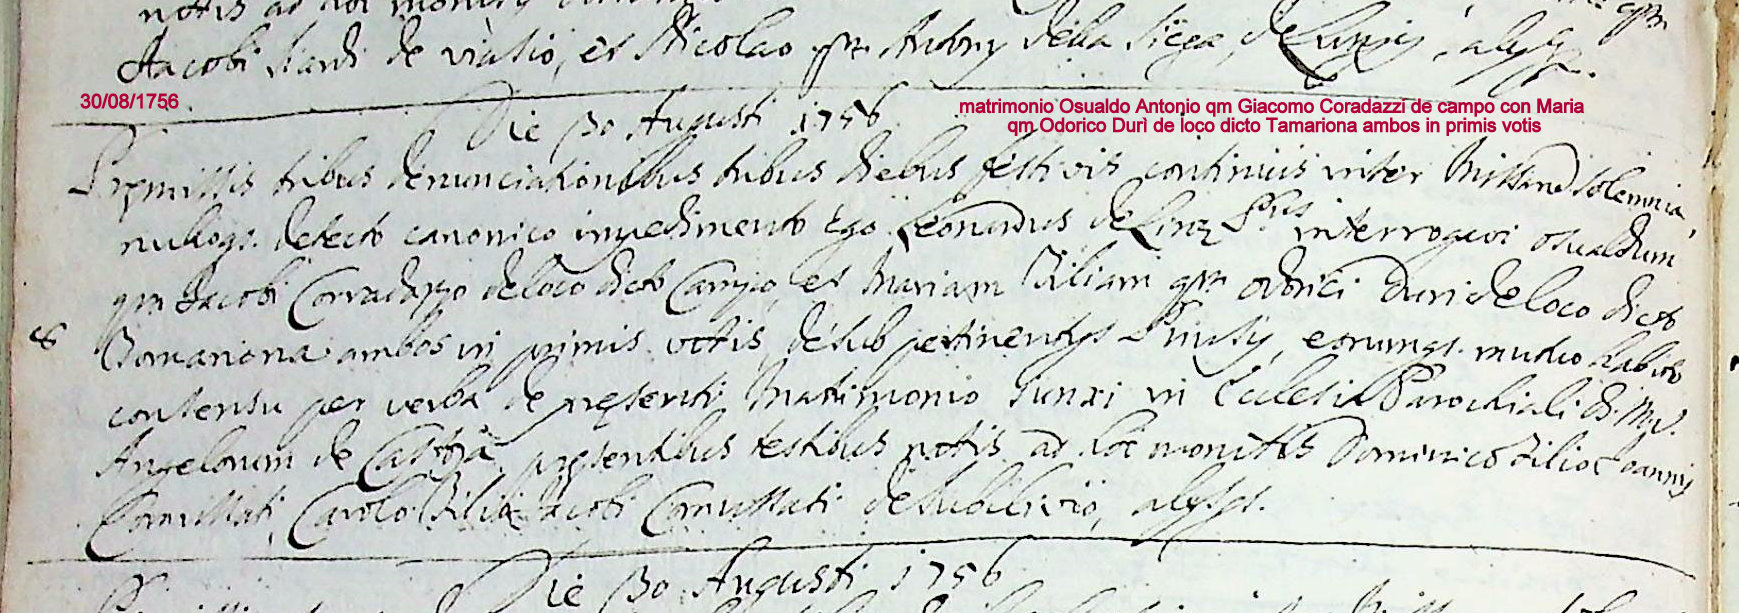 notis ad hoc monitis
Jacobi Nardi de viasio, et Nicolao qm Antony della Siega, de
30/08/1756
Die 30 Augusti 1756
matrimonio Osualdo Antonio qm Giacomo Coradazzi de campo con Maria
qm Odorico Durì de loco dicto Tamariona ambos in primis votis
Premissis tribus denunciationibus tribus diebus festivis continuis inter Missarum solemnia,
nulloqs. detecto canonico impedimento Ego Leonardus de interrogavi Osualdum
qm Jacobi Corradazzo de loco dicto Campo, et Mariam Filiam qm Odorici Duri de loco dicto
Tomariona ambos in primis votis, de sub pertinentys eorumqs. mutuo habito
consensu per verba de presenti Matrimonio Junxi in Ecclesia Parochiali
Angelorum de Castoja presentibus testibus notis ad hoc monitis Dominico Filio Joannis
Comissati, Carolo Filio Jacobi Comussati
Die 30 Augusti 1756